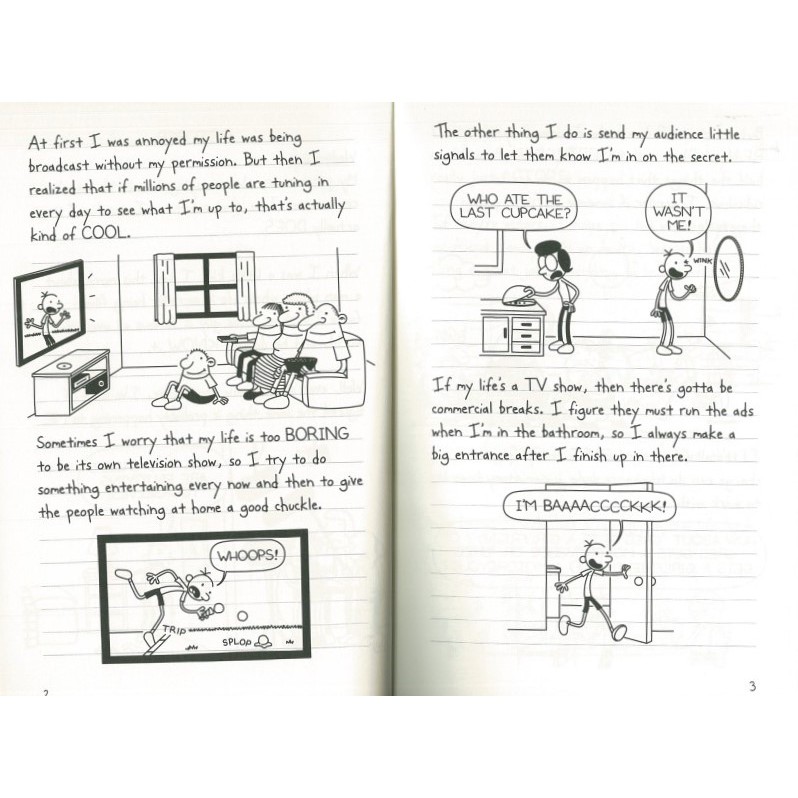 At first I was annoyed my life was being
broadcast without my permission. But then I
realized that if millions of people are tuning in
every day to see what I'm up to, that's actually
kind of COOL.
Sometimes I worry that my life is too BORING
to be its own television show, so I try to do
something entertaining every now and then to give
the people watching at home a good chuckle.
WHOOPS!
TRIP
SPLOP
2
The other thing I do is send my audience little
signals to let them know I'm in on the secret.
WHO ATE THE
LAST CUPCAKE?
IT
WASN'T
ME!
WINK
If my life's a TV show, then there's gotta be
commercial breaks. I figure they must run the ads
when I'm in the bathroom, so I always make a
big entrance after I finish up in there.
I'M BAAAACCCCKKK!
3